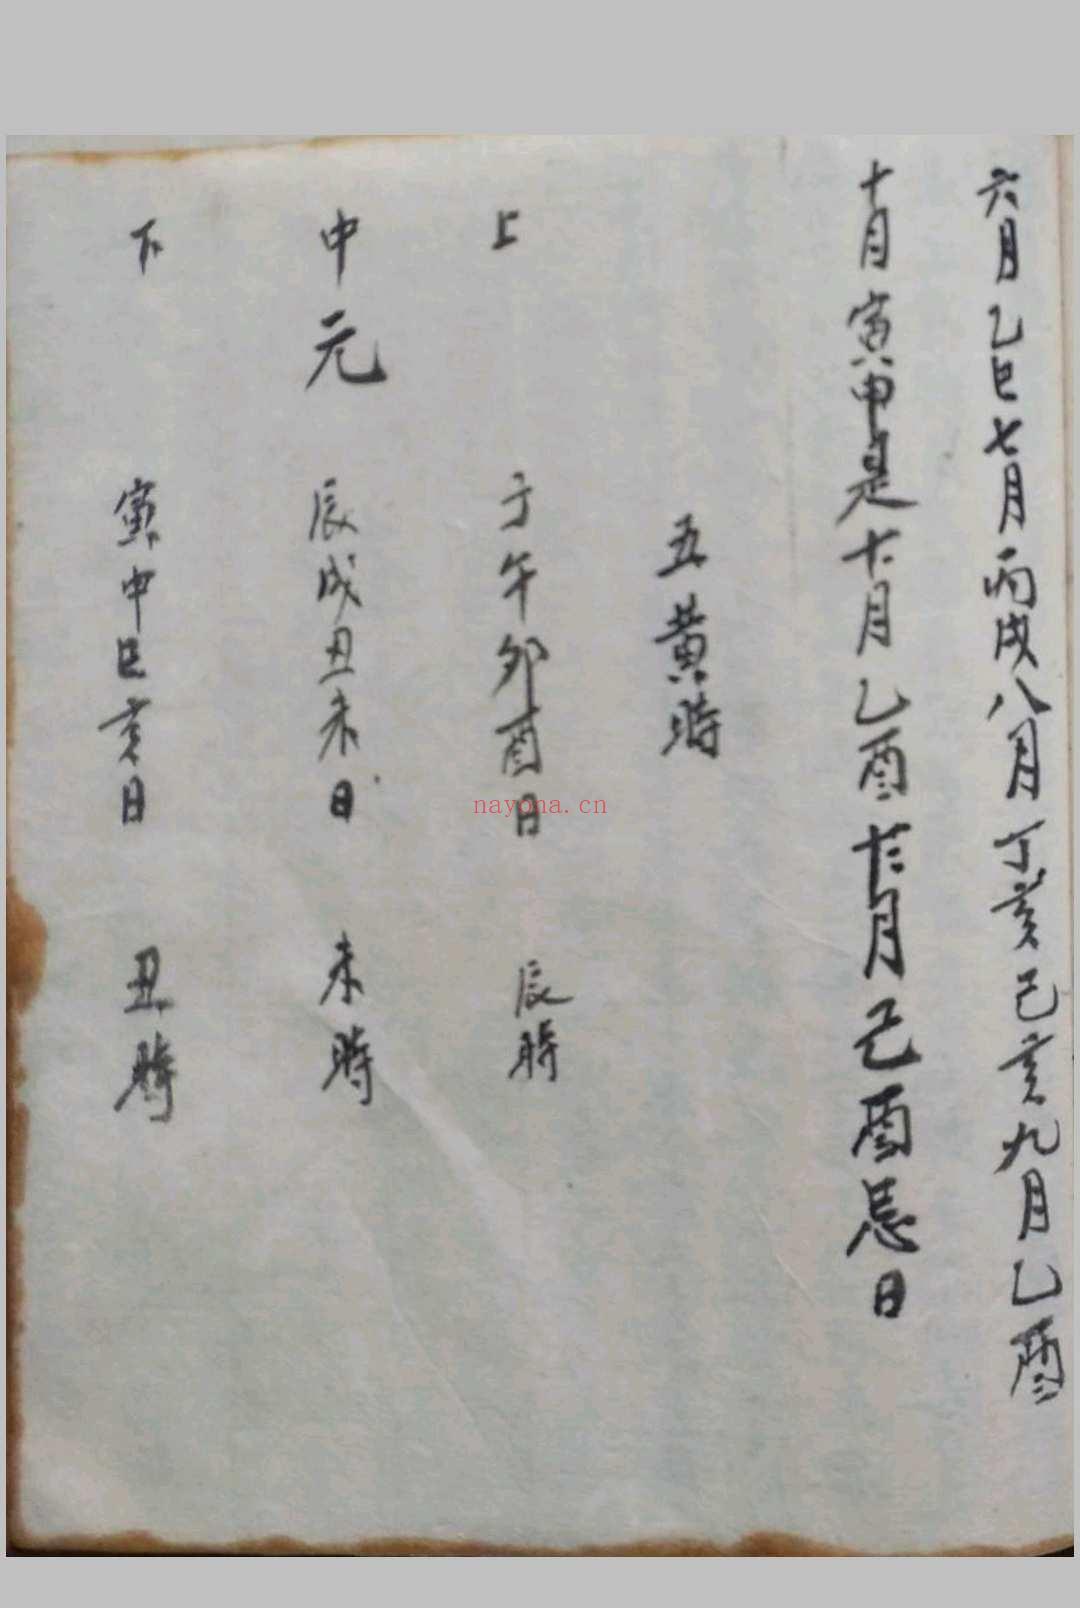 六月乙巳七月丙戌八月丁亥己亥九月乙酉
十月寅申是十一月乙酉十二月己酉忌日
五黄時
上 子午卯酉日 辰時
中元 辰戌丑未日 未時
下 寅申巳亥日 丑時
nayona.cn